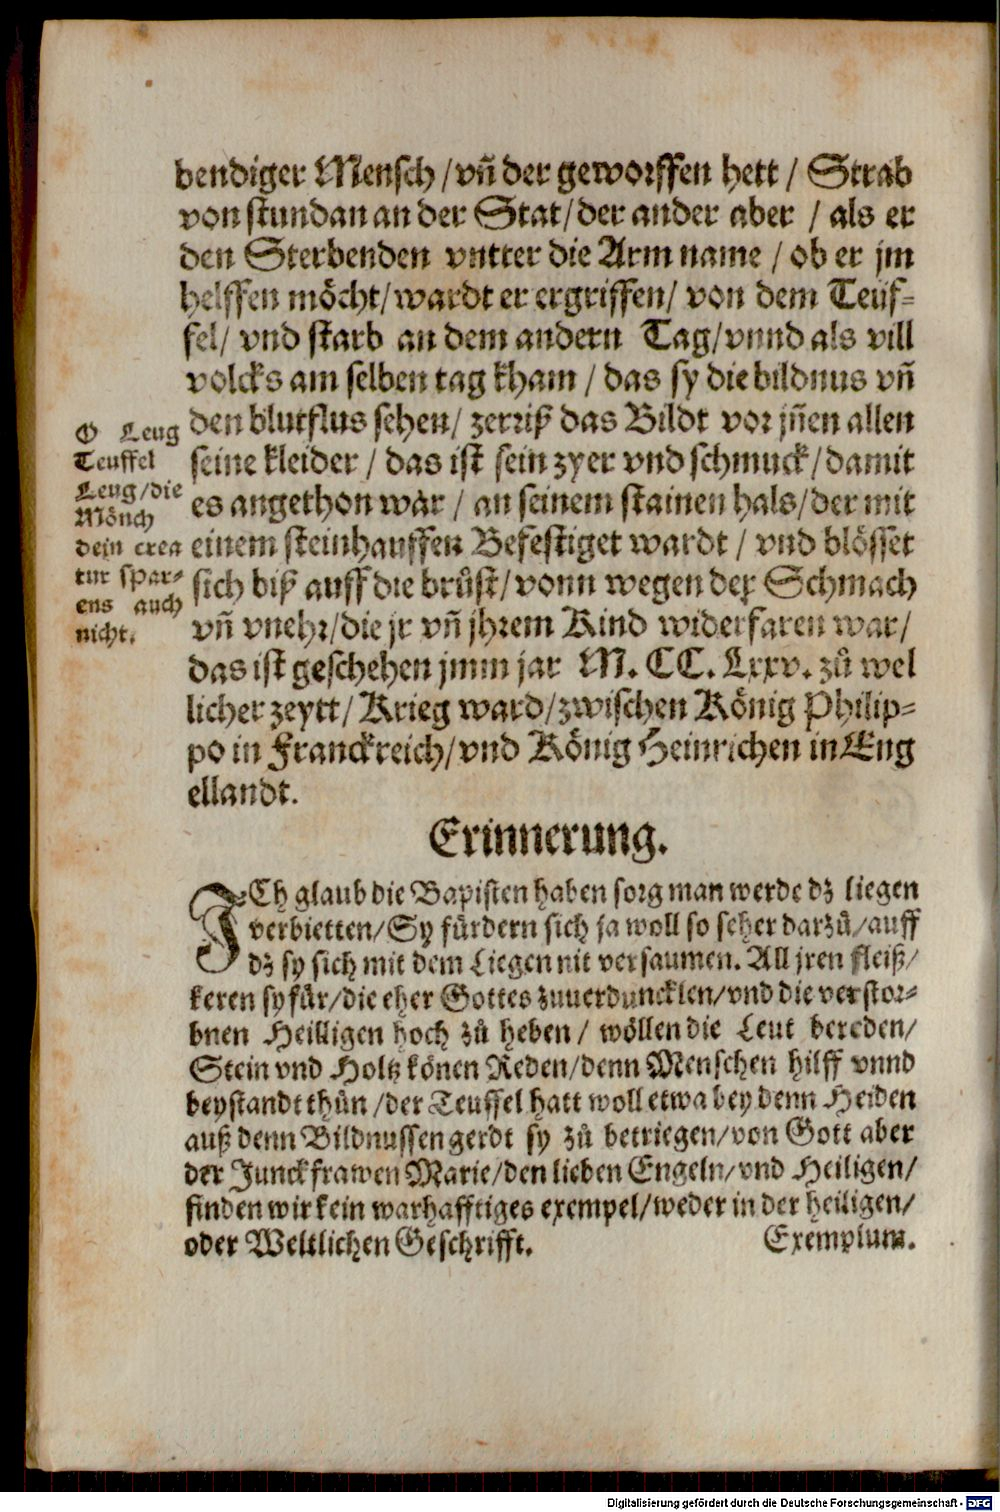 bendiger Mensch / vñ der geworffen hett / Strab
von stundan an der Stat / der ander aber / als er
den Sterbenden vntter die Arm name / ob er jm
helffen möcht / wardt er ergriffen / von dem Teuf=
fel / vnd starb an dem andern Tag / vnnd als vill
volcks am selben tag kham / das sy die bildnus vñ
den blutflus sehen / zerriß das Bildt vor jñen allen
seine kleider / das ist sein zyer vnd schmuck / damit
es angethon war / an seinem stainen hals / der mit
einem steinhauffen Befestiget wardt / vnd blösset
sich biß auff die brůst / vonn wegen der Schmach
vñ vnehr / die jr vñ jhrem Kind widerfaren war /
das ist geschehen jmm jar M. CC. Lxxv. zů wel
licher zeytt / Krieg ward / zwischen König Philip=
po in Franckreich / vnd König Heinrichen in Eng
ellandt.
O Leug
Teuffel
Leug / die
Mönch
dein crea
tur spar=
ens auch
nicht.
Erinnerung.
ICh glaub die Bapisten haben sorg man werde dz liegen
verbietten / Sy fürdern sich ja woll so seher darzů / auff
dz sy sich mit dem Liegen nit versaumen. All jren fleiß /
keren sy für / die eher Gottes zuuerduncklen / vnd die verstor=
bnen Heilligen hoch zů heben / wöllen die Leut bereden /
Stein vnd Holtz könen Reden / denn Menschen hilff vnnd
beystandt thůn / der Teuffel hatt woll etwa bey denn Heiden
auß denn Bildnussen gerdt sy zů betriegen / von Gott aber
der Junckfrawen Marie / den lieben Engeln / vnd Heiligen /
finden wir kein warhafftiges exempel / weder in der heiligen /
oder Weltlichen Geschrifft.
Exemplum.
Digitalisierung gefördert durch die Deutsche Forschungsgemeinschaft - DFG